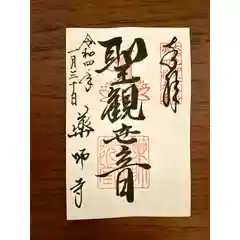 奉拝
聖観世音
令和四年
一月三十日
薬師寺